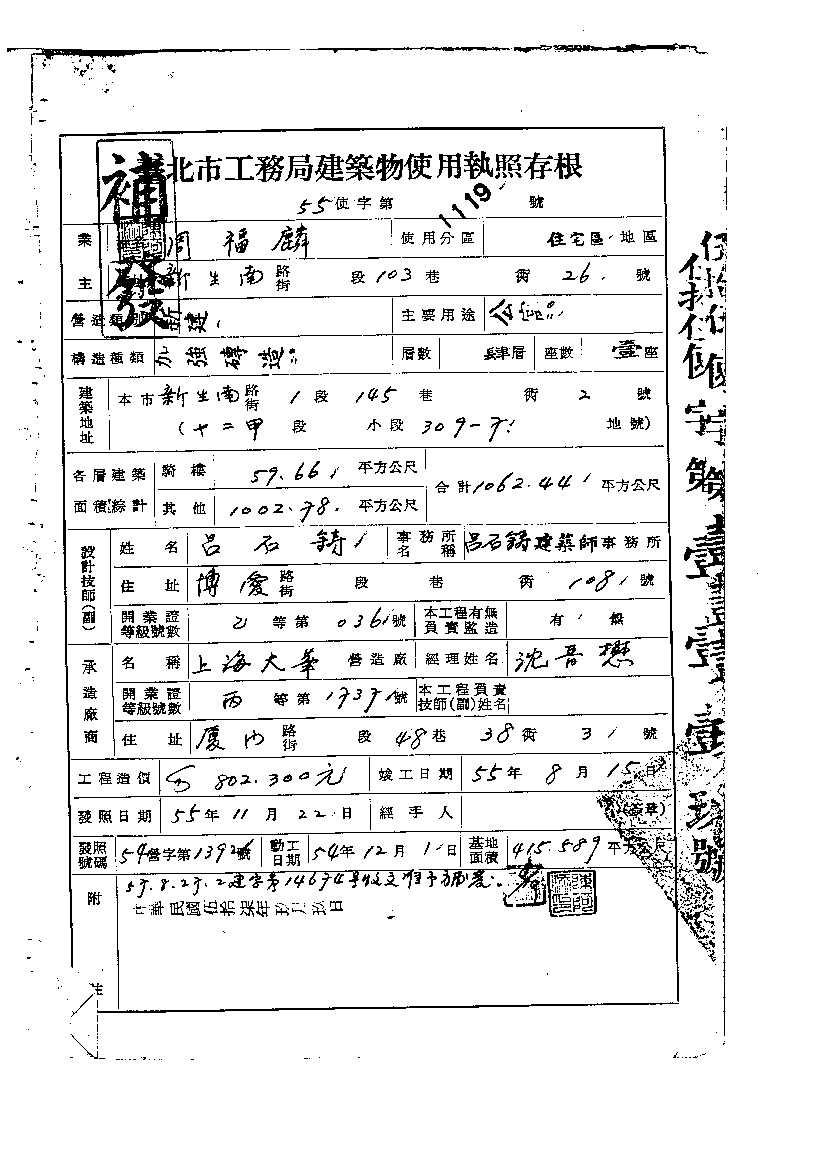 補發
臺北市工務局建築物使用執照存根
55使字第 1119 號
業主 周福麟 使用分區 住宅區 地區
新生南路街 段103巷 衖26號
營造類別 新建 主要用途
構造種類 加強磚造 層數 肆層 座數 壹座
建築地址 本市新生南路街 1段 145巷 衖 2 號
(十二甲 段 小段 309- 地號)
各層建築面積綜計 騎樓 59.66 平方公尺 合計1062.44 平方公尺
其他 1002.78 平方公尺
設計技師(副) 姓名 呂石鑄 事務所名稱 呂石鑄建築師事務所
住址 博愛路街 段 巷 衖 108 號
開業證等級號數 乙等第 036號 本工程有無負責監造 有 無
承造廠商 名稱 上海大華營造廠 經理姓名 沈吾懋
開業證等級號數 丙等第 號 本工程負責技師(副)姓名
住址 廈門路街 段 48巷 38衖 3 號
工程造價 802.300元 竣工日期 55年 8月 15日
發照日期 55年 11月 22日 經手人 (章)
發照號碼 54營字第1392號 動工日期 54年 12月 1日 基地面積 415.589平方公尺
附註
中華民國伍拾柒年玖月玖日
伍拾伍使字第壹壹壹玖號